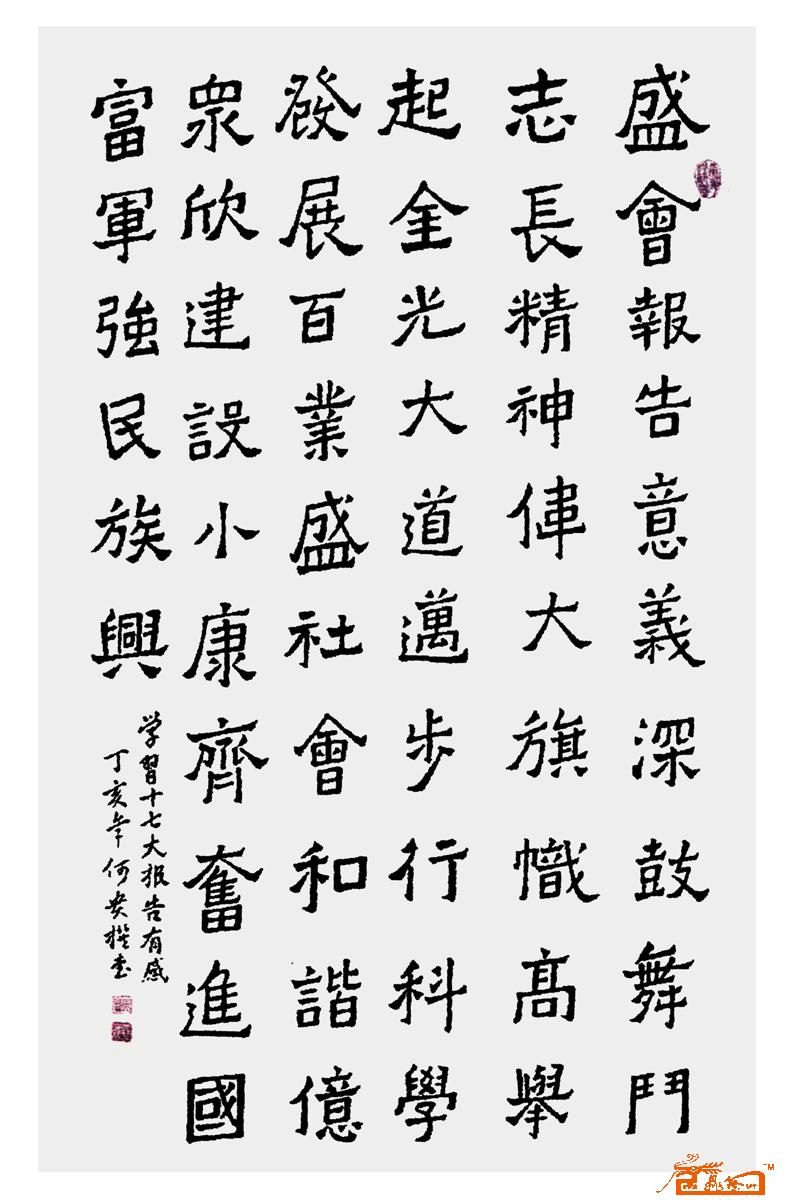 盛會報告意義深鼓舞鬥
志長精神偉大旗幟高舉
起金光大道邁步行科學
發展百業盛社會和諧億
衆欣建設小康齊奮進國
富軍強民族興
学習十七大报告有感
丁亥年何安撰书